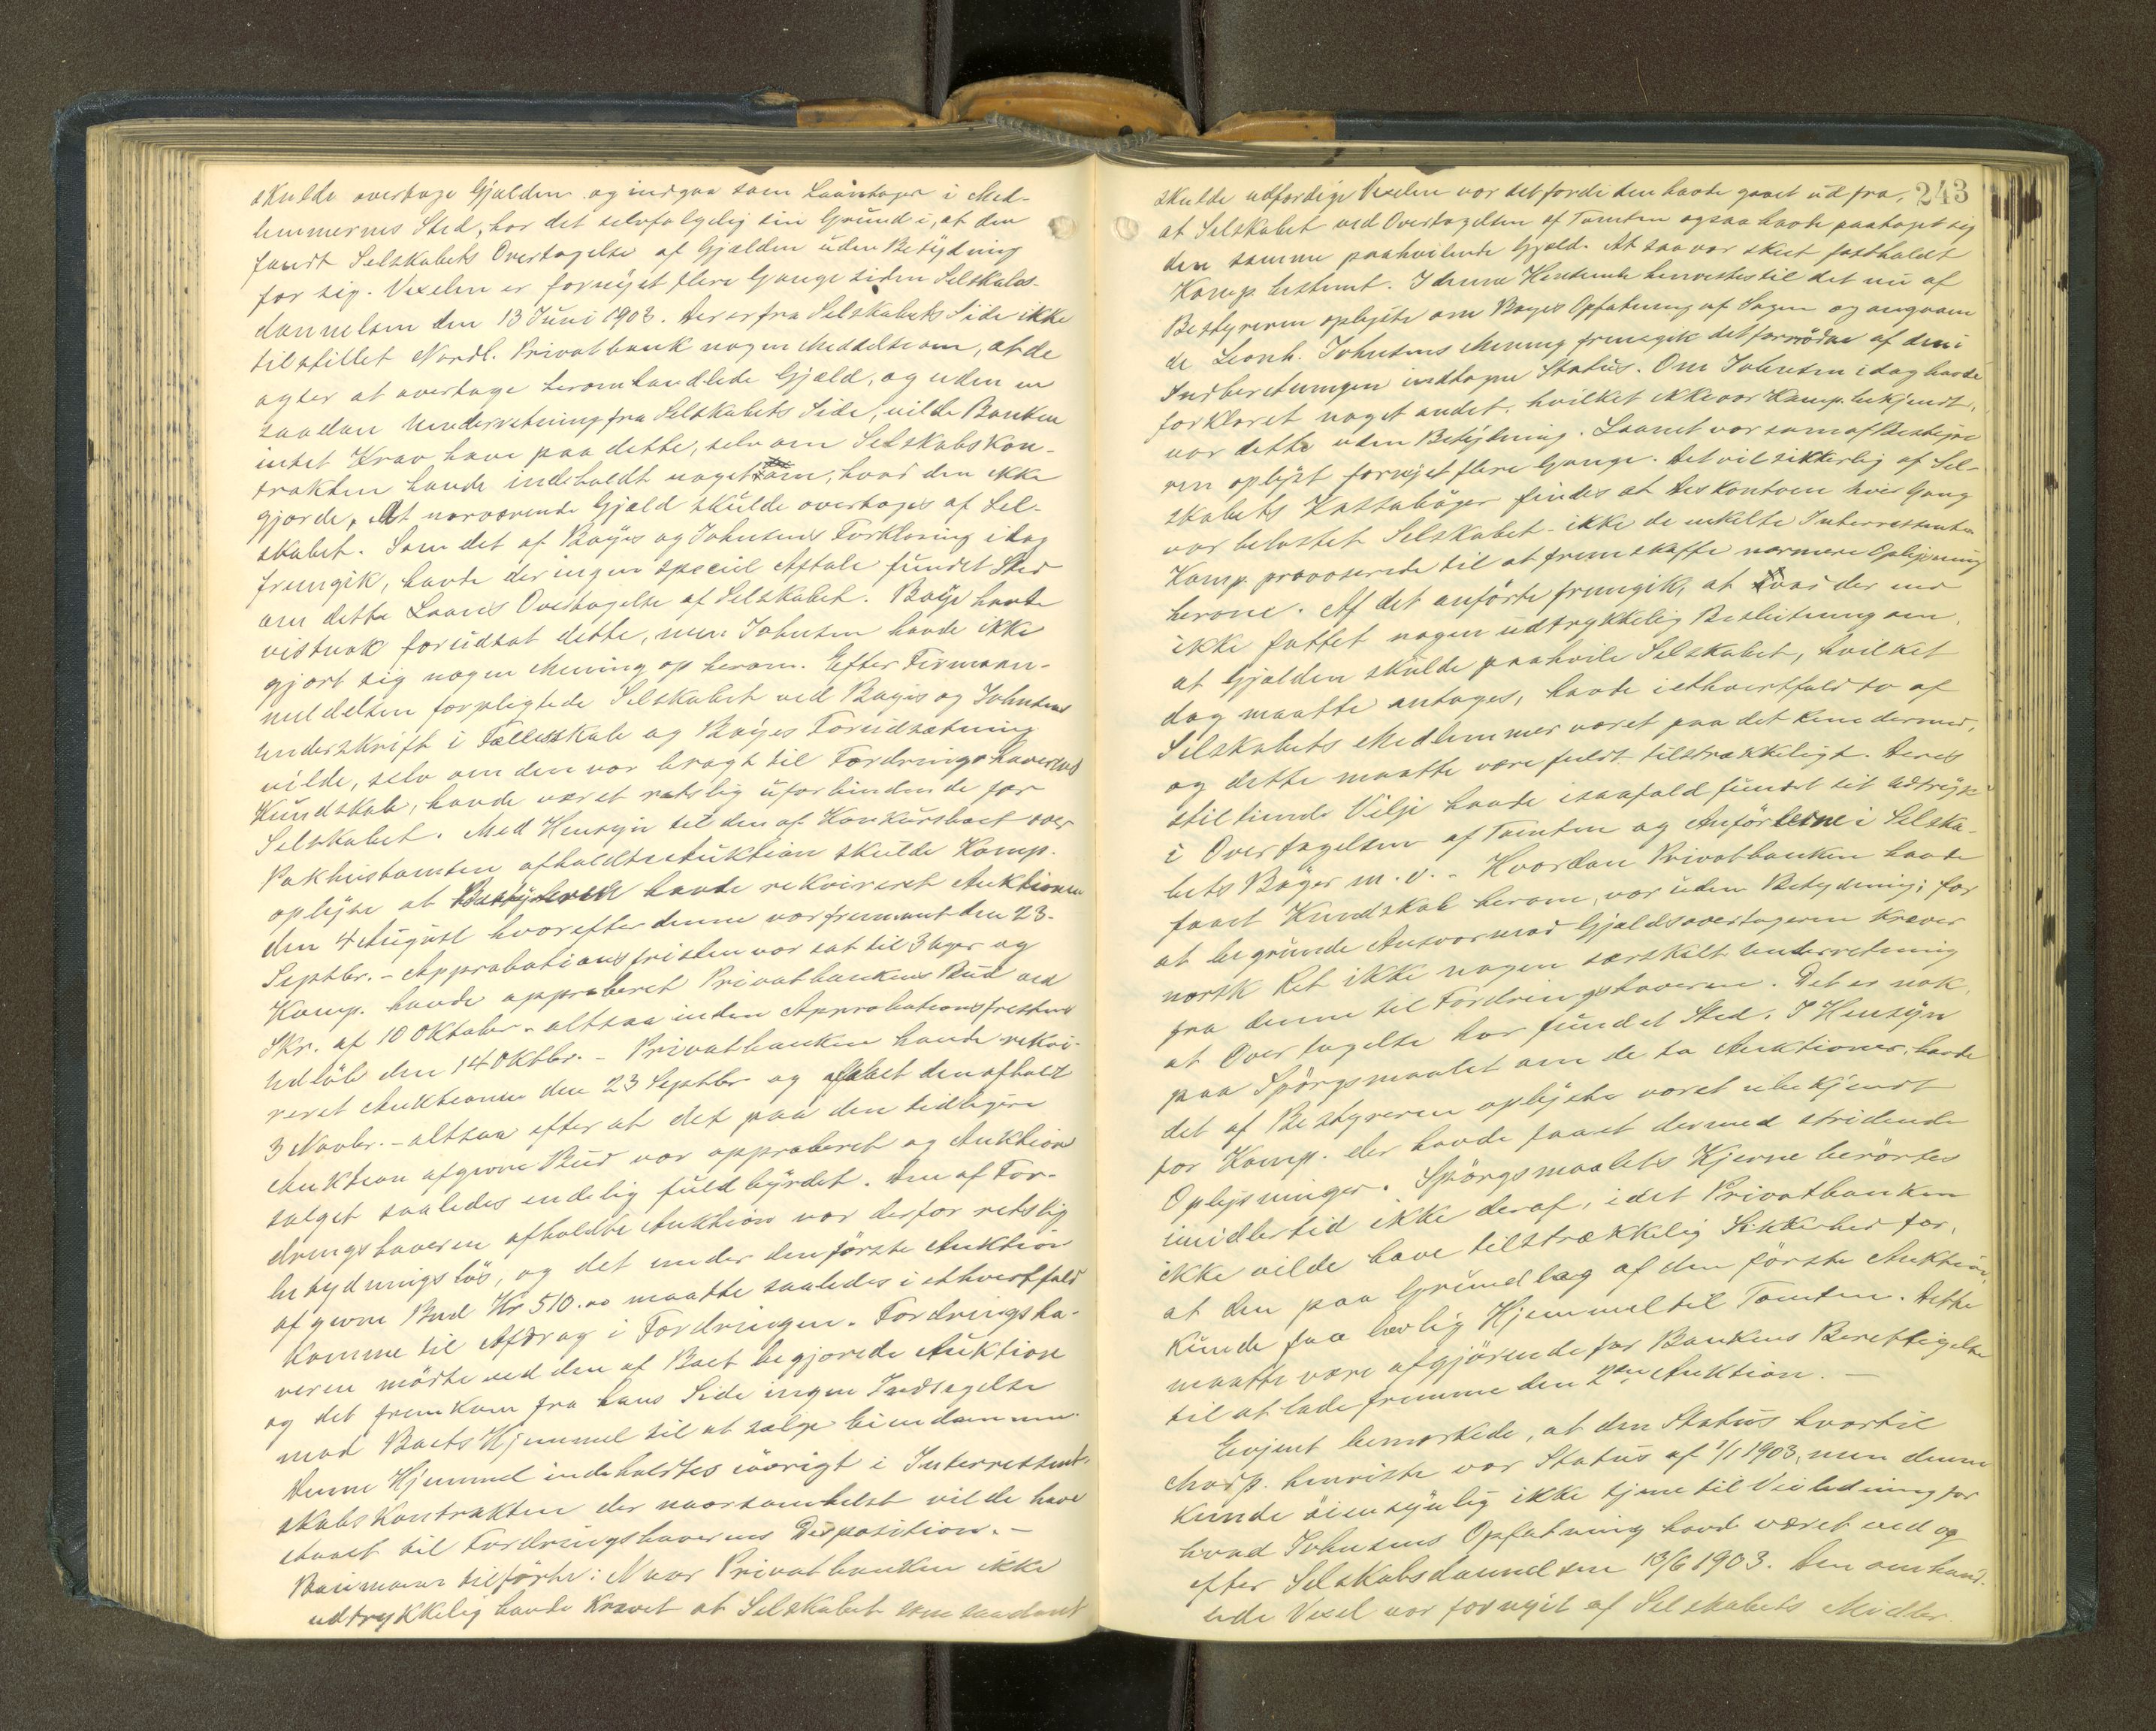 skulde overtage Gjælden og indgaa som Laantager i Med-
lemmernes Sted, har det selvfølgelig sin Grund i, at den
fandt Selskabets Overtagelse af Gjælden uden Betydning
for sig. Vexelen er fornyet flere Gange siden Selskabs-
dannelsen den 13 Juni 1903. Der er fra Selskabets Side ikke
tilstillet Nordl. Privatbank nogen Meddelse om, at de
agter at overtage heromhandlede Gjæld, og uden en
saadan Underretning fra Selskabets Side, vilde Banken
intet Krav have paa dette, selv om Selskabskon-
trakten havde indeholdt noget om, hvad den ikke
gjorde, At nærværende Gjæld skulde overtages af Sel-
skabet. Som det af Bøyes og Johnsens Forklaring idag
fremgik, havde der ingen speciel Aftale fundet Sted
om dette Laans Overtagelse af Selskabet. Bøye havde
vistnok forudsat dette, men Johnsen havde ikke
gjort sig nogen Mening op herom. Efter Firmaan-
meldelsen forpligtede Selskabet ved Bøyes og Johnsens
Underskrift i Fællesskab og Bøyes Forudsætning
vilde, selv om den var bragt til Fordringshaverens
Kundskab, havde været retslig uforbindende for
Selskabet. Med Hensyn til den af Konkursboet over
Pakhustomten afholdte Auktion skulde Komp.
oplyse at Bestyreren havde rekvireret Auktionen
den 4 August hvorefter denne var fremmet den 23-
Septbr. - Approbationsfristen var sat til 3 Uger og
Komp. havde approberet Privatbankens Bud ved
Skr. af 10 Oktober - altsaa inden Approbationsfristens
Udløb den 14 Oktbr. - Privatbanken havde rekvi-
reret Auktionen den 23 Septbr og faaet den afholdt
3 Novbr. - altsaa efter at det paa den tidligere
Auktion afgivne Bud var approberet og Auktion
salget saaledes endelig fuldbyrdet. Den af For-
dringshaveren afholdte Auktion var derfor retslig
betydningsløs, og det under den første Auktion
afgivne Bud Kr 510.00 maatte saaledes i ethvertfald
komme til Afdrag i Fordringen. Fordringsha-
veren mødte ved den af Boet begjærede Auktion
og det fremkom fra hans Side ingen Indsigelse
mod Boets Hjemmel til at sælge Eiendommen.
Denne Hjemmel indeholdtes iøvrigt i Interressent-
skabskontrakten der naarsomhelst vilde have
staaet til Fordringshaverens Disposition. -
Baumann tilførte: Naar Privatbanken ikke
udtrykkelig havde krævet at Selskabet som saadant
243
skulde udfærdige Vexelen var det fordi den havde gaaet ud fra,
at Selskabet ved Overtagelsen af Tomten ogsaa havde paataget sig
den samme paahvilende Gjæld. At saa var skeet fastholdt
Komp. bestemt. I denne Henseende henvistes til det nu af
Bestyreren oplyste om Bøyes Opfatning af Sagen og angaaen
de Leonh. Johnsens Mening fremgik det af den i
Indberetningen indtagne Status. Om Johnsen idag havde
forklaret noget andet, hvilket ikke var Komp. bekjendt,
var dette uden Betydning. Laanet var som af Bestyre
ren oplyst fornyet flere Gange. Det vil sikkerlig af Sel-
skabets Kassabøger findes at Deskontoen hver Gang
var belastet Selskabet - ikke de enkelte Interressenter
Komp. provoserede til at fremskaffe nærmere Oplysning
herom. Af det anførte fremgik, at var der end
ikke fattet nogen udtrykkelig Beslutning om,
at Gjælden skulde paahvile Selskabet, hvilket
dog maatte antages, havde i ethvertfald to af
Selskabets Medlemmer været paa det Rene dermed,
og dette maatte være fuldt tilstrækkeligt. Deres
stiltiende Vilje havde isaafald fundet sit Udtryk
i Overtagelsen af Tomten og Anførslerne i Selska-
bets Bøger m. v. - Hvordan Privatbanken havde
faaet Kundskab herom, var uden Betydning; for
at begrunde Ansvar mod Gjældsovertageren kræver
norsk Ret ikke nogen særskilt Underretning
fra denne til Fordringshaveren. Det er nok,
at Overtagelse har fundet Sted. I Hensyn
paa Spørgsmaalet om de to Auktioner, havde
det af Bestyreren oplyste været ubekjendt
for Komp. der havde faaet dermed stridende
Oplysninger. Spørgsmaalets Kjerne berørtes
imidlertid ikke deraf, idet Privatbanken
ikke vilde have tilstrækkelig Sikkerhed for,
at den paa Grundlag af den første Auktion,
kunde faa lovlig Hjemmel til Tomten. Dette
maatte være afgjørende for Bankens Berettigelse
til at lade fremme den 2den Auktion. -
Evjent bemærkede, at den Status hvortil
Modp. henviste var Status af 1/1 1903, men denne
kunde øiensynlig ikke tjene til Veiledning for
hvad Johnsens Opfatning havde været ved og
efter Selskabsdannelsen 13/6 1903. Den omhand-
lede Vexel var fornyet af Selskabets Midler.